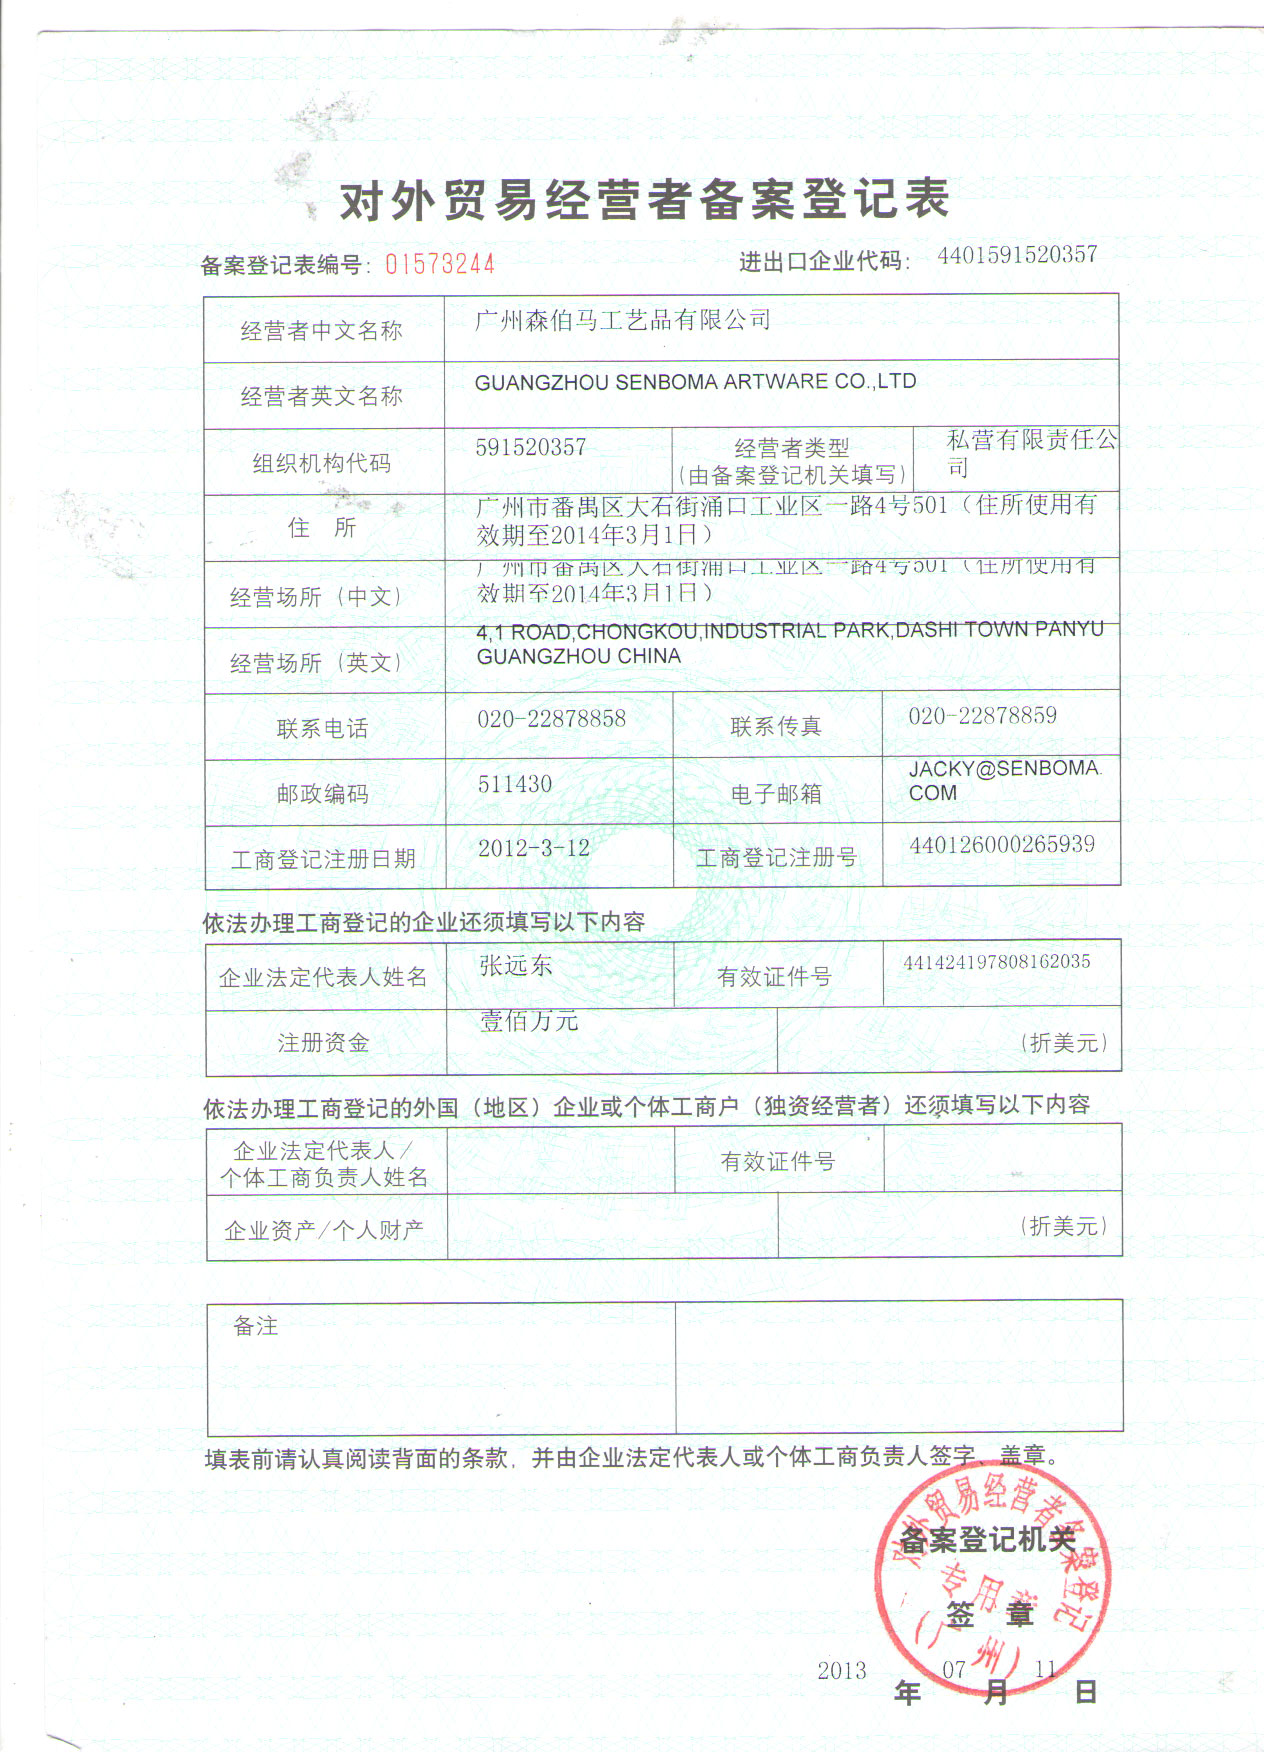 对外贸易经营者备案登记表
备案登记表编号：01573244
进出口企业代码： 4401591520357
经营者中文名称 广州森伯马工艺品有限公司
经营者英文名称 GUANGZHOU SENBOMA ARTWARE CO.,LTD
组织机构代码 591520357 经营者类型 (由备案登记机关填写) 私营有限责任公
司
住 所 广州市番禺区大石街涌口工业区一路4号501（住所使用有
效期至2014年3月1日）
经营场所（中文） 广州市番禺区大石街涌口工业区一路4号501（住所使用有
效期至2014年3月1日）
经营场所（英文） 4,1 ROAD,CHONGKOU,INDUSTRIAL PARK,DASHI TOWN PANYU
GUANGZHOU CHINA
联系电话 020-22878858 联系传真 020-22878859
邮政编码 511430 电子邮箱 JACKY@SENBOMA.
COM
工商登记注册日期 2012-3-12 工商登记注册号 440126000265939
依法办理工商登记的企业还须填写以下内容
企业法定代表人姓名 张远东 有效证件号 441424197808162035
注册资金 壹佰万元 （折美元）
依法办理工商登记的外国（地区）企业或个体工商户（独资经营者）还须填写以下内容
企业法定代表人/
个体工商负责人姓名 有效证件号
企业资产/个人财产 （折美元）
备注
填表前请认真阅读背面的条款，并由企业法定代表人或个体工商负责人签字、盖章。
对外贸易经营者备案登记
备案登记机关
专用章
签 章
（广州）
2013 年 07 月 11 日